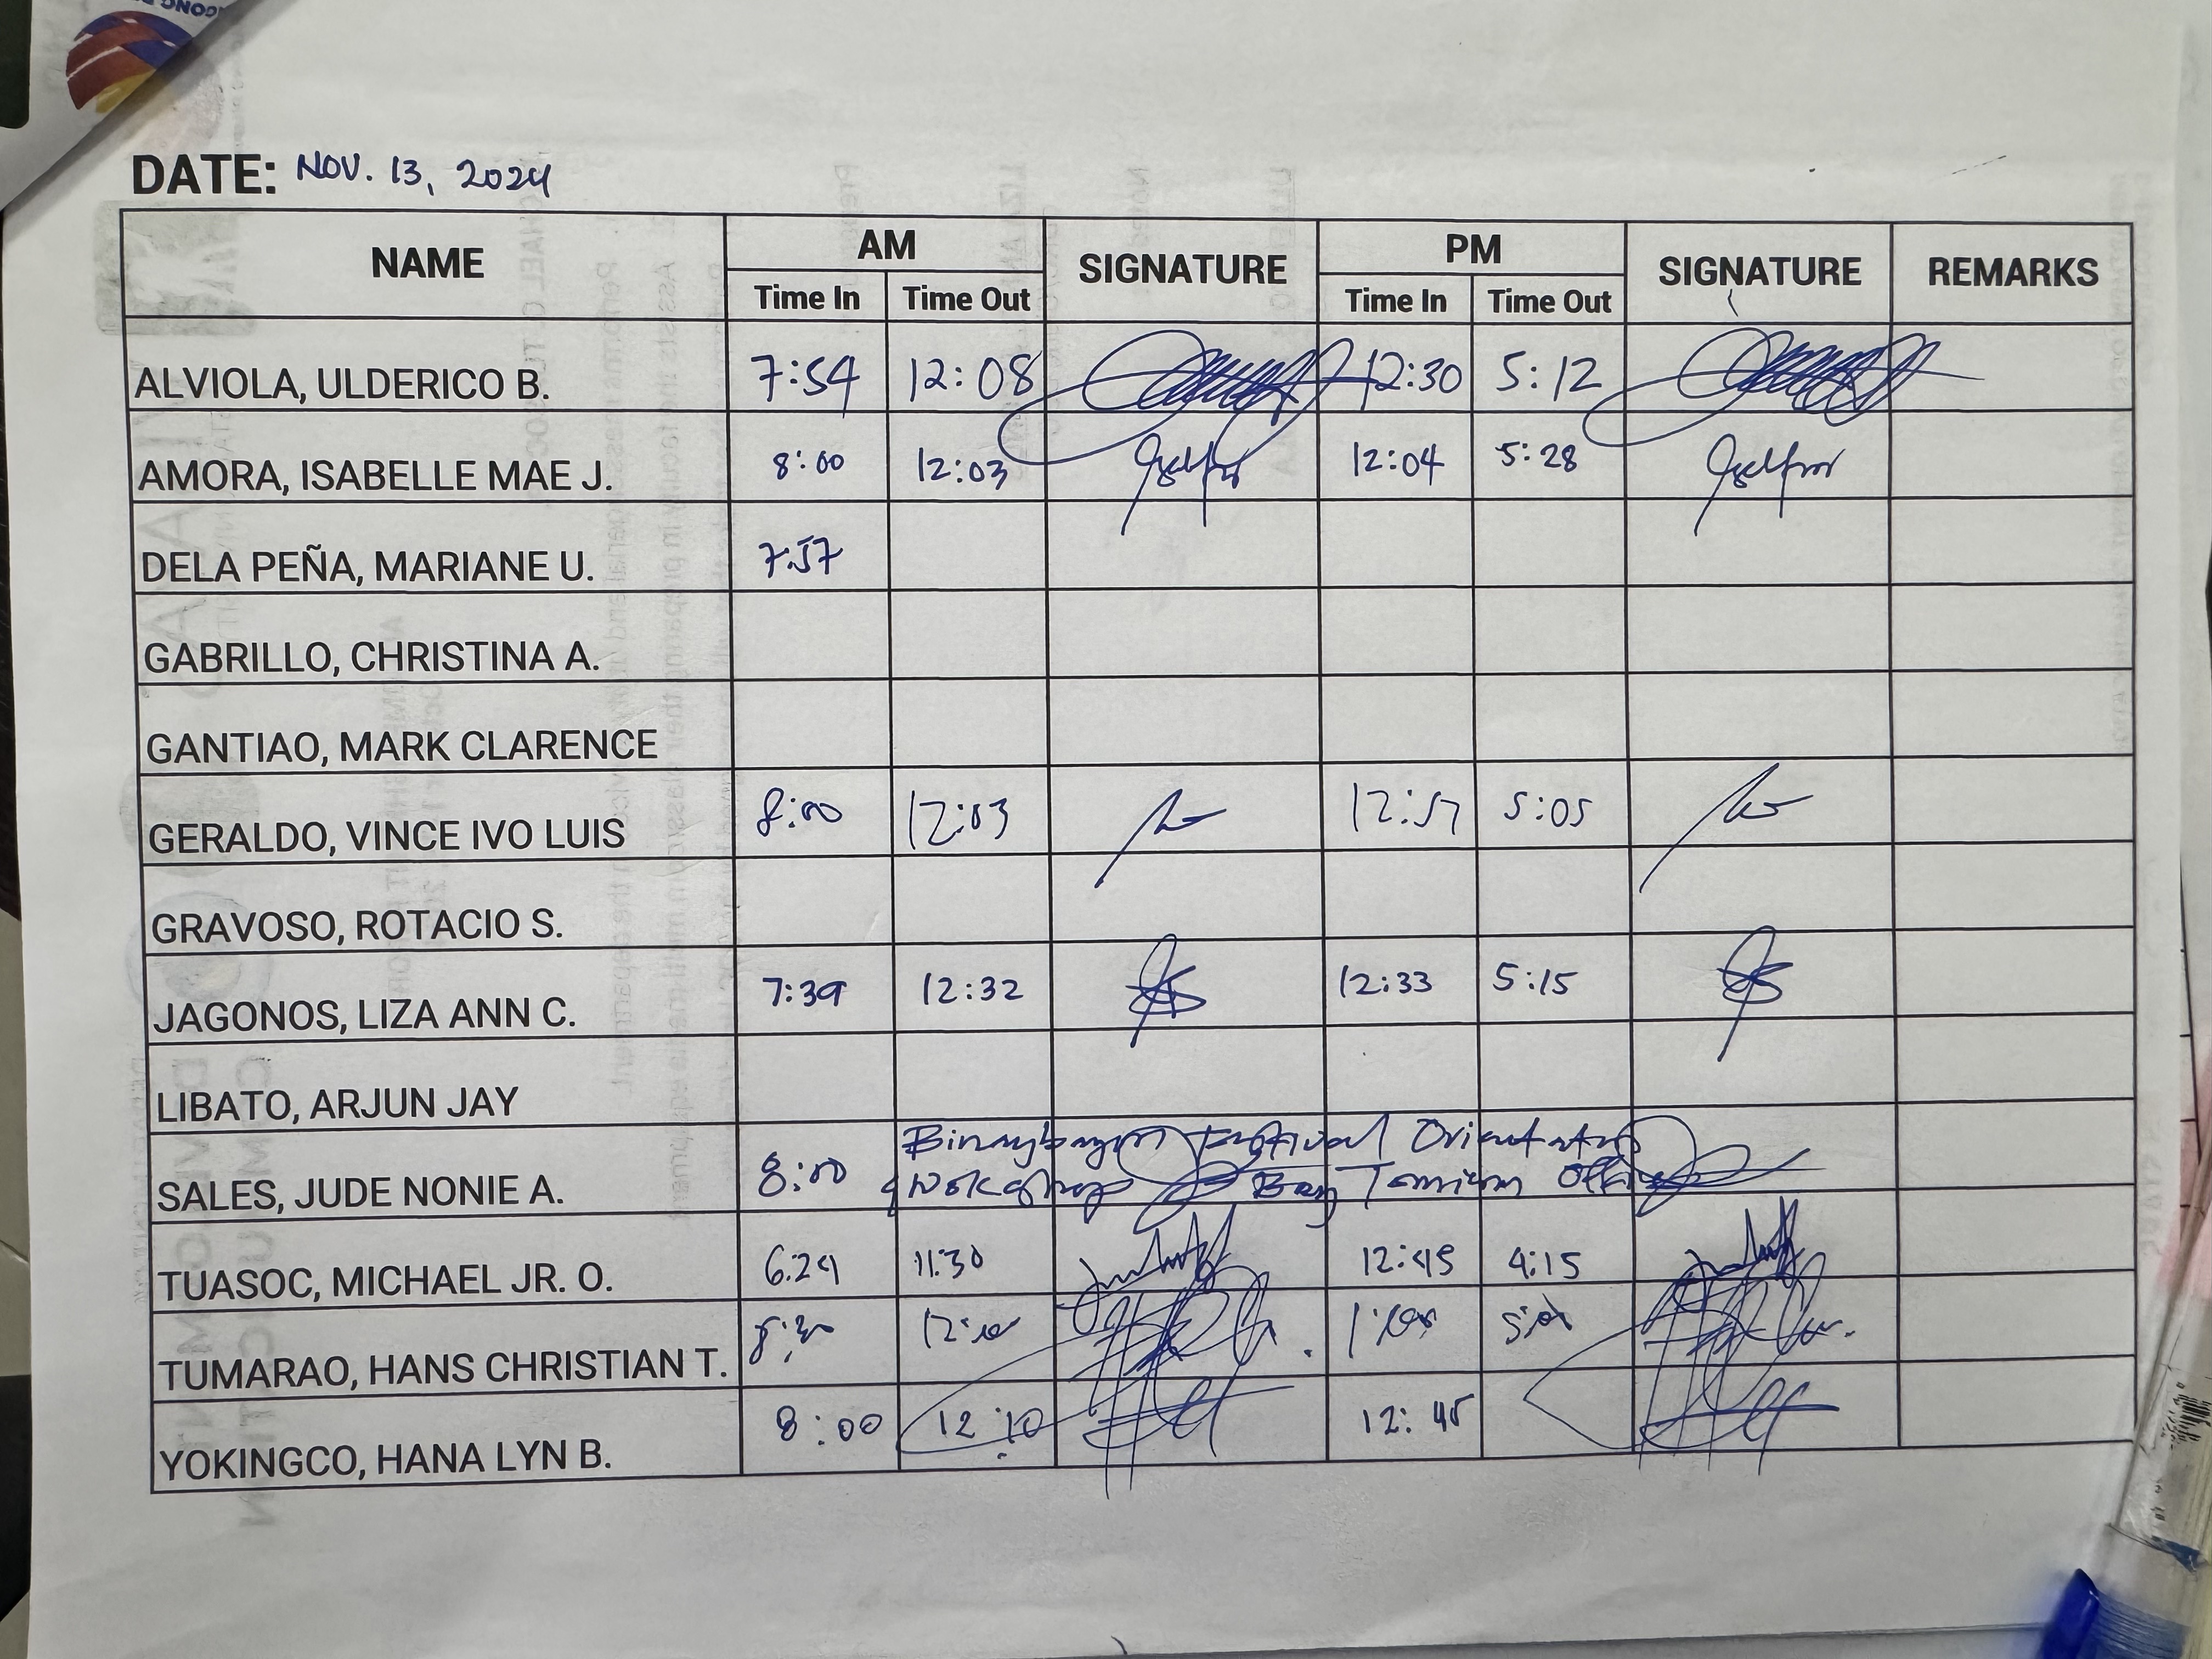 DATE: NOV. 13, 2024
NAME AM SIGNATURE PM SIGNATURE REMARKS
Time In Time Out Time In Time Out
ALVIOLA, ULDERICO B. 7:54 12:08 12:30 5:12
AMORA, ISABELLE MAE J. 8:00 12:03 12:04 5:28
DELA PEÑA, MARIANE U. 7:57
GABRILLO, CHRISTINA A.
GANTIAO, MARK CLARENCE
GERALDO, VINCE IVO LUIS 8:00 12:03 12:57 5:05
GRAVOSO, ROTACIO S.
JAGONOS, LIZA ANN C. 7:39 12:32 12:33 5:15
LIBATO, ARJUN JAY
Festival Orientation
SALES, JUDE NONIE A. 8:00 Tourism Office
TUASOC, MICHAEL JR. O. 6:29 11:30 12:45 4:15
TUMARAO, HANS CHRISTIAN T.
YOKINGCO, HANA LYN B. 8:00 12:10 12:45